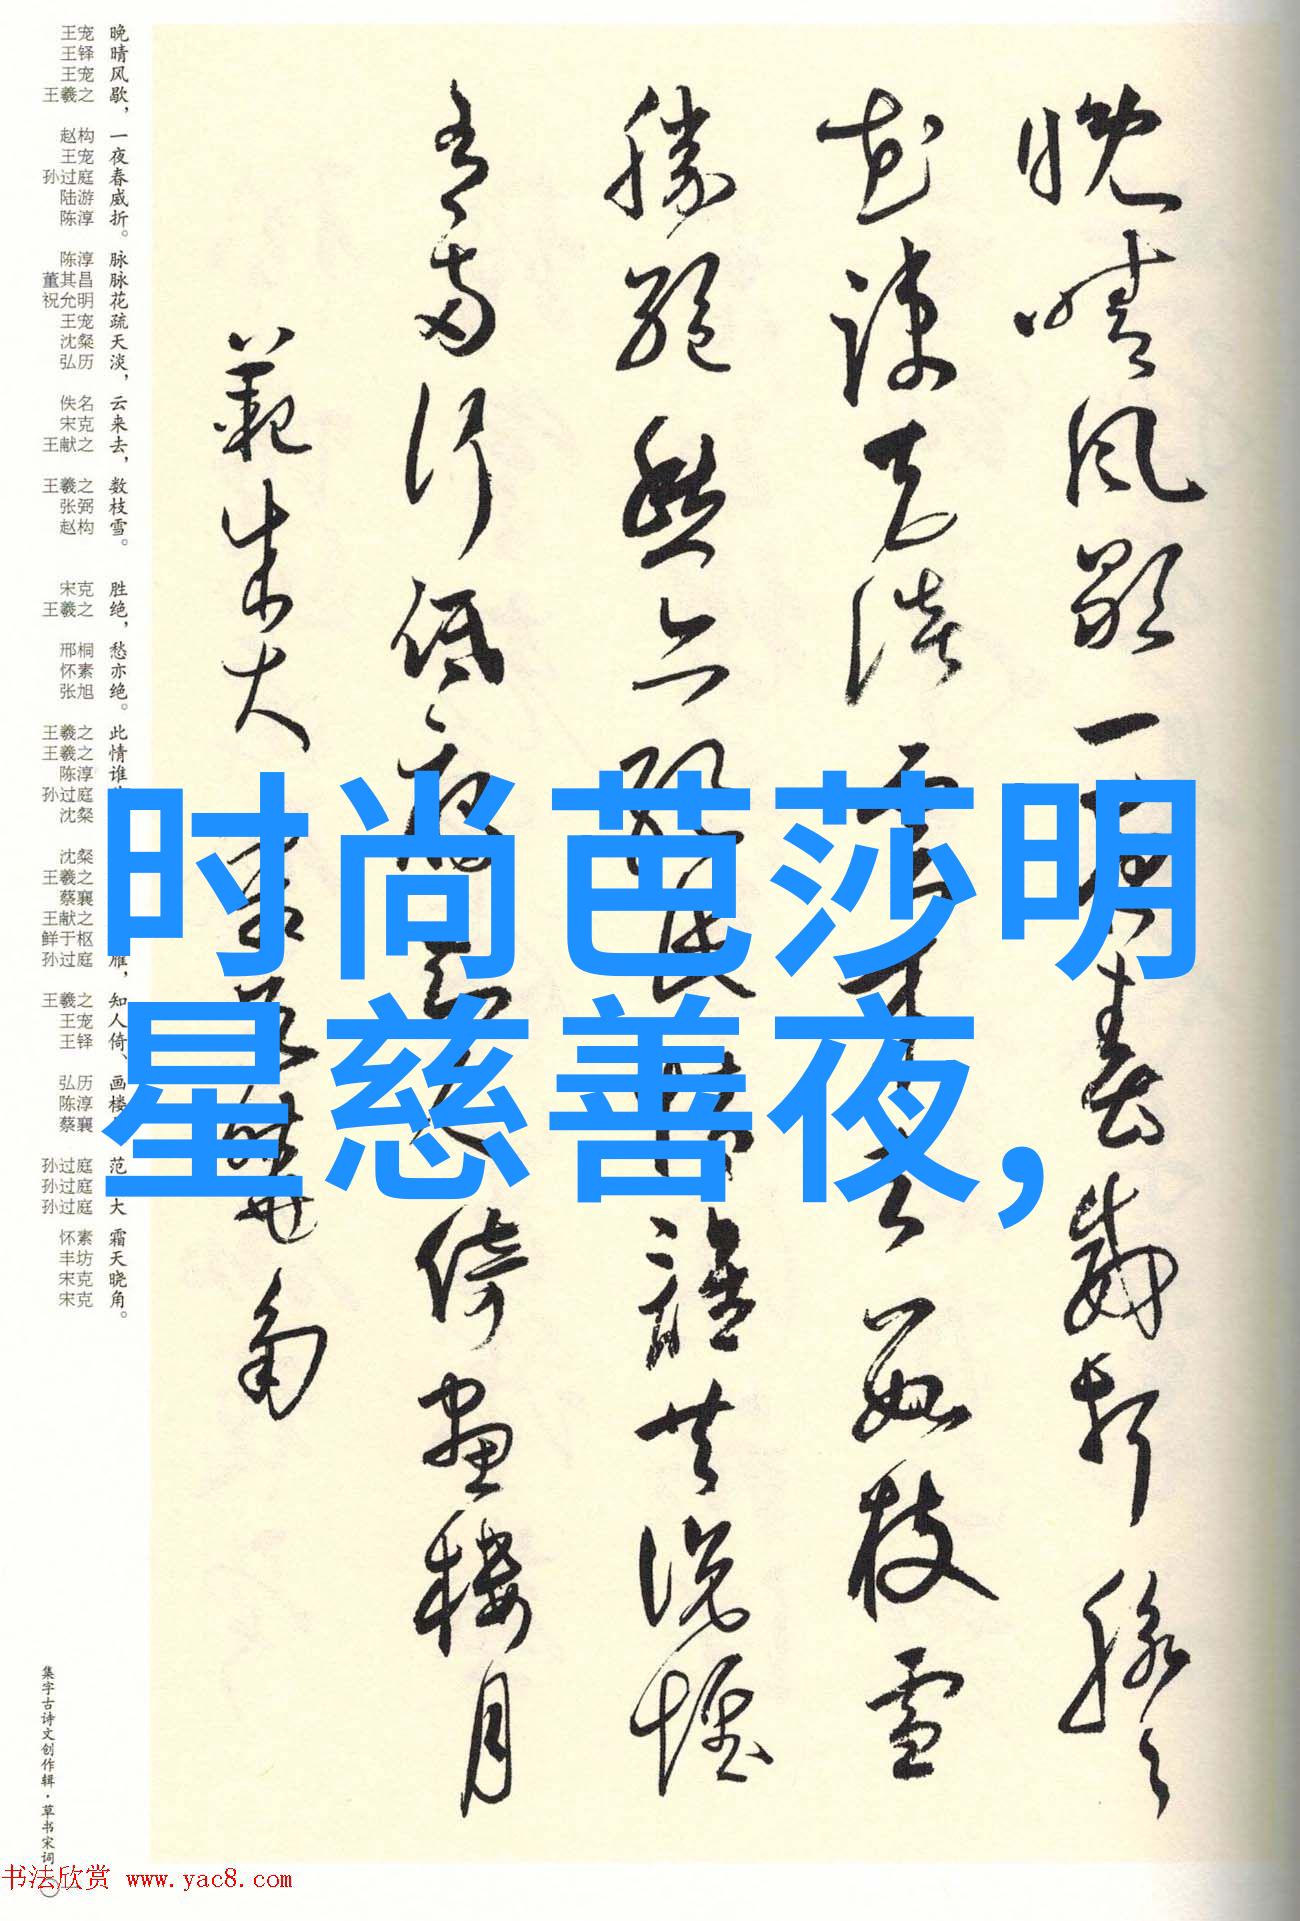 晚晴风歇一夜春威折脉脉
花疏天淡云来去数枝雪
胜绝愁亦绝此情谁共说惟
有两行低雁知人倚画楼月
范成大 霜天晓角
晚晴风歇，一夜春威折。脉脉花疏天淡，云来去，数枝雪。胜绝，愁亦绝。此情谁
雁，知人倚、画楼
范
大
霜天晓角。
王宠 王铎 王宠 王羲之 赵构 王宠 孙过庭 陆游 陈淳 陈淳 董其昌 祝允明 王宠 沈粲 弘历 佚名 宋克 王献之 王羲之 张弼 赵构 宋克 王羲之 邢桐 怀素 张旭 王羲之 王羲之 陈淳 孙过庭 沈粲 沈粲 王羲之 蔡襄 王献之 鲜于枢 孙过庭 王羲之 王宠 王铎 弘历 陈淳 蔡襄 孙过庭 孙过庭 孙过庭 怀素 丰坊 宋克 宋克
集字古诗文创作辑·草书宋词
时尚芭莎明
星慈善夜,
书法欣赏 www.yac8.com